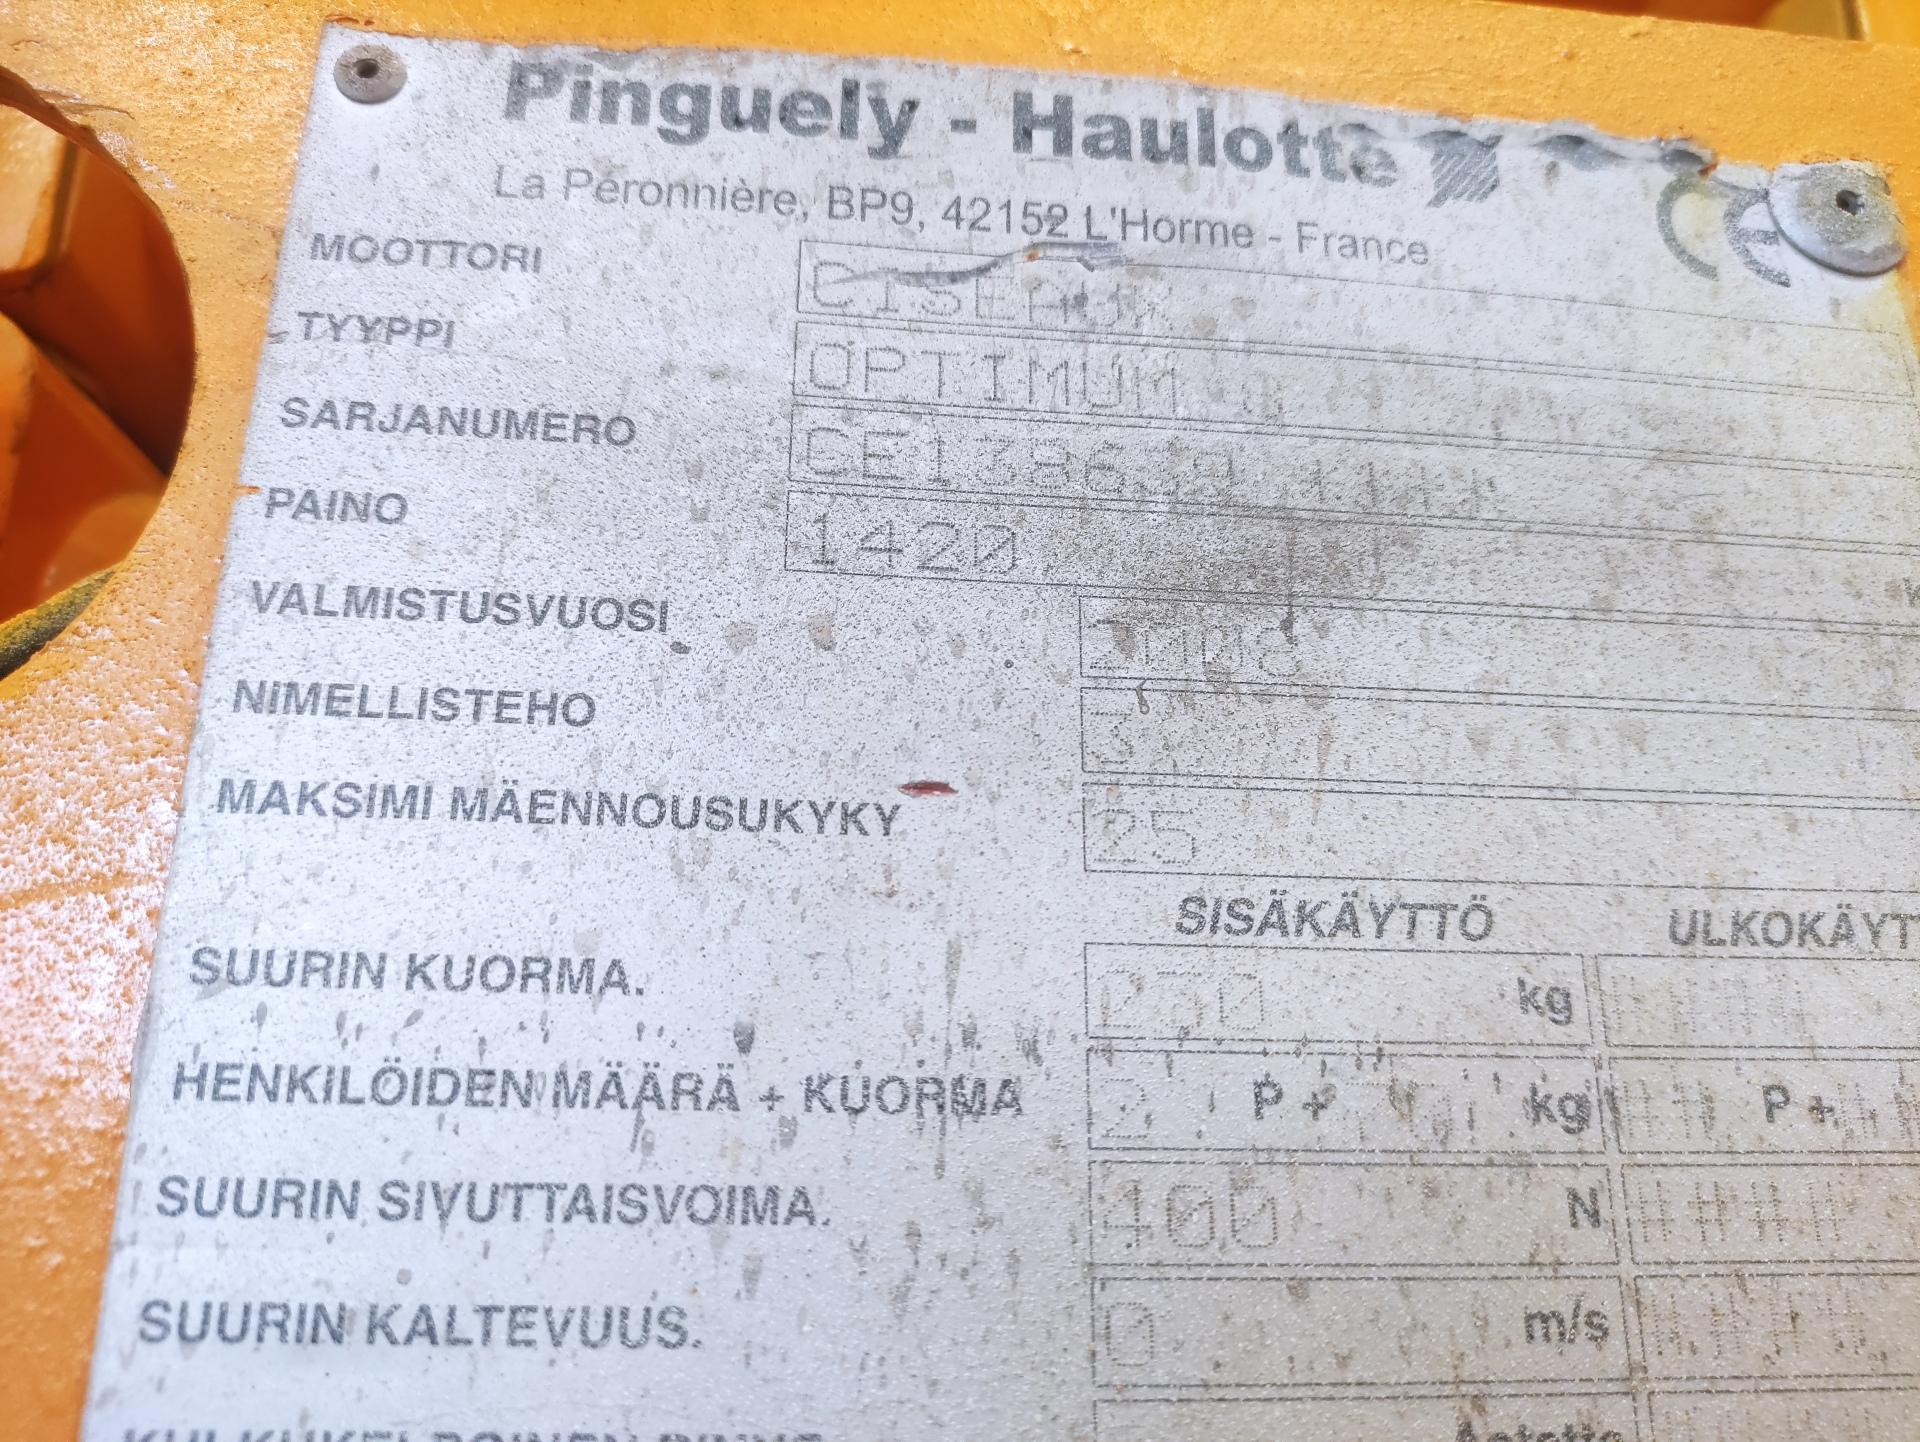 Pinguely - Haulotte
La Péronnière, BP9, 42152 L'Horme - France
CE
MOOTTORI
TYYPPI OPTIMUM
SARJANUMERO
PAINO 1420
VALMISTUSVUOSI
NIMELLISTEHO 3
MAKSIMI MÄENNOUSUKYKY 25
SISÄKÄYTTÖ
SUURIN KUORMA. 230 kg
HENKILÖIDEN MÄÄRÄ + KUORMA 2 P + kg P +
SUURIN SIVUTTAISVOIMA. 400 N ####
SUURIN KALTEVUUS. 0 m/s ####